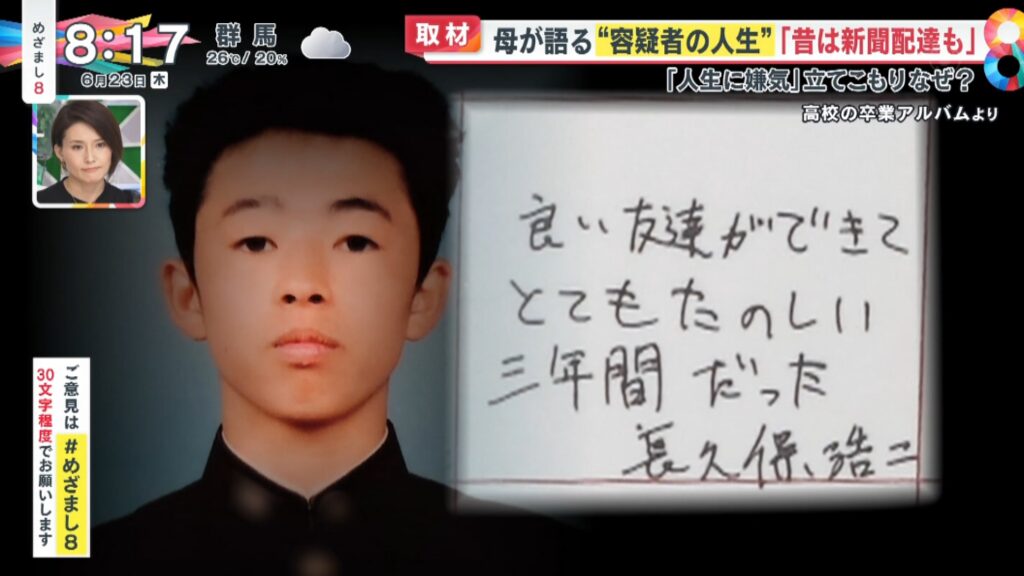 めざまし8
8:17
6月23日 木
群馬
26℃/20%
取材
母が語る“容疑者の人生”「昔は新聞配達も」
「人生に嫌気」立てこもりなぜ？
高校の卒業アルバムより
良い友達ができて
とてもたのしい
三年間だった
長久保浩二
ご意見は #めざまし8
30文字程度でお願いします